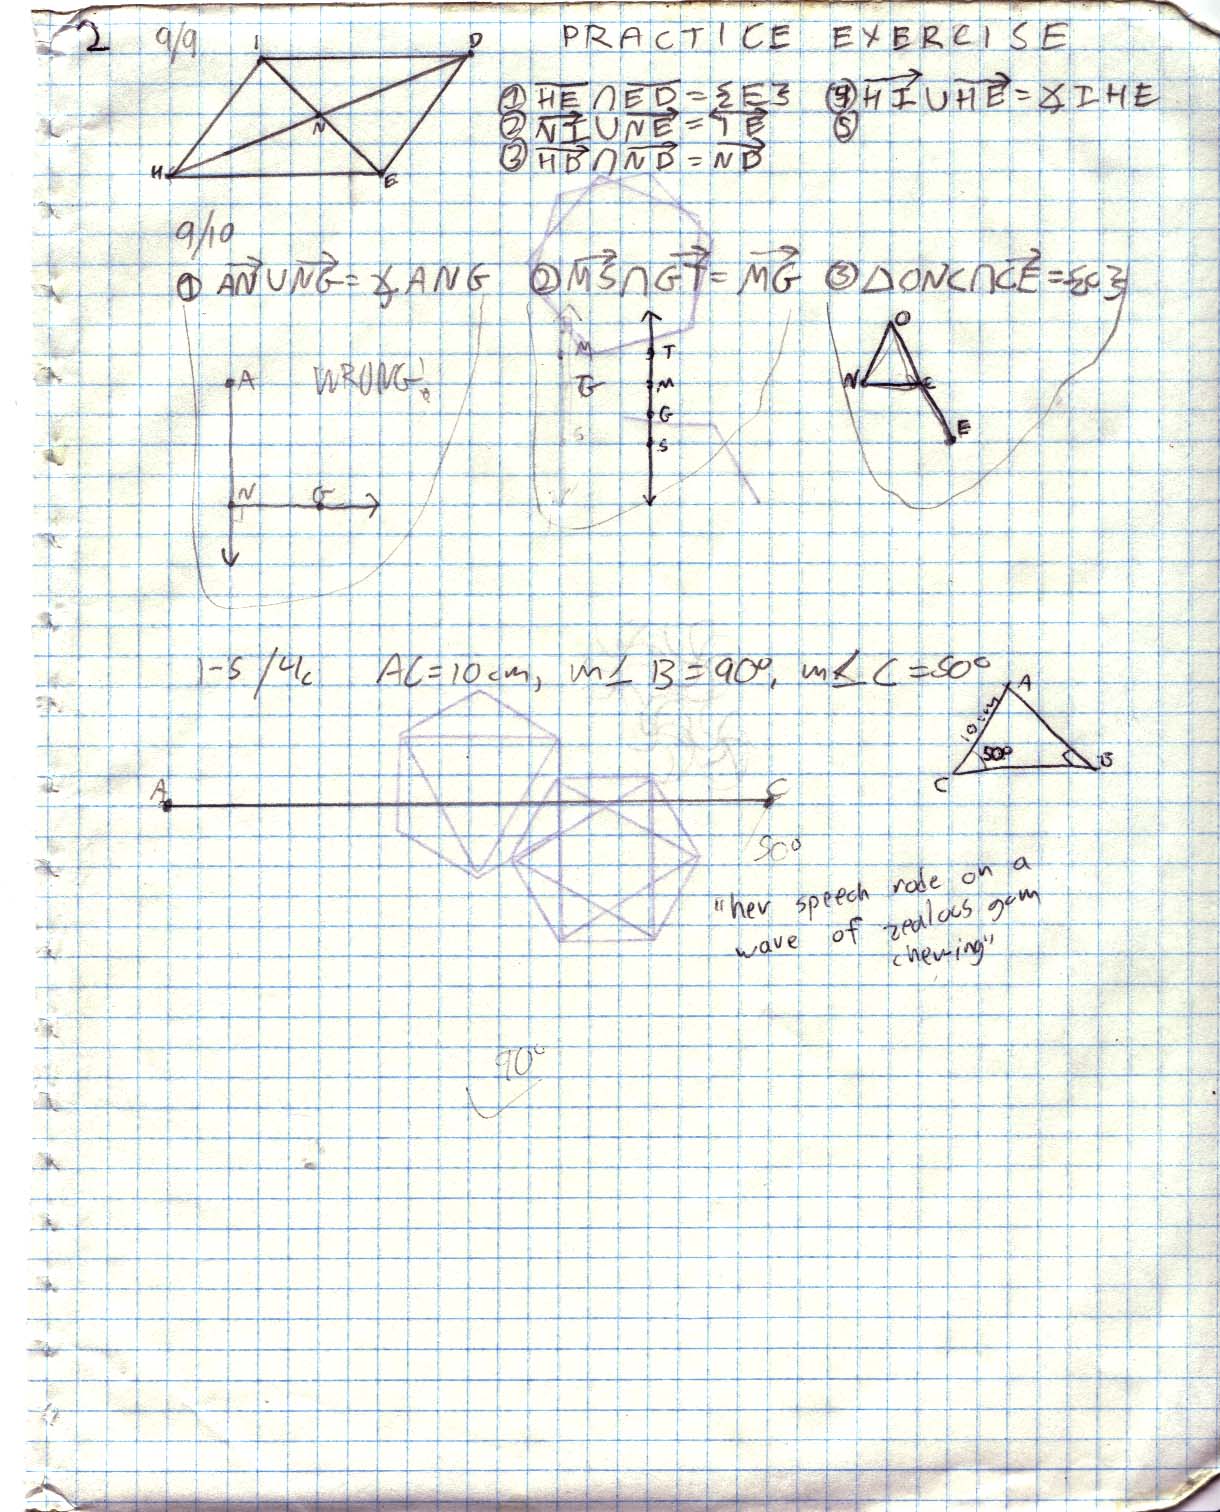 2 9/9 PRACTICE EXERCISE
I D
N
H E
① HE ∩ ED = {E} ④ HI ∪ HE = ∡ IHE
② NI ∪ NE = IE ⑤
③ HD ∩ ND = ND
9/10
① AN ∪ NG = ∡ ANG ② MS ∩ GT = MG ③ △ONC ∩ CE = {C}
A WRONG!
N G
M
G
S
T
M
G
S
O
N C
E
1-5/4c AC=10cm, m∠ B=90°, m∡ C=50°
A
10cm
50°
C B
A C
50°
"her speech rode on a
wave of zealous gum
chewing"
90°